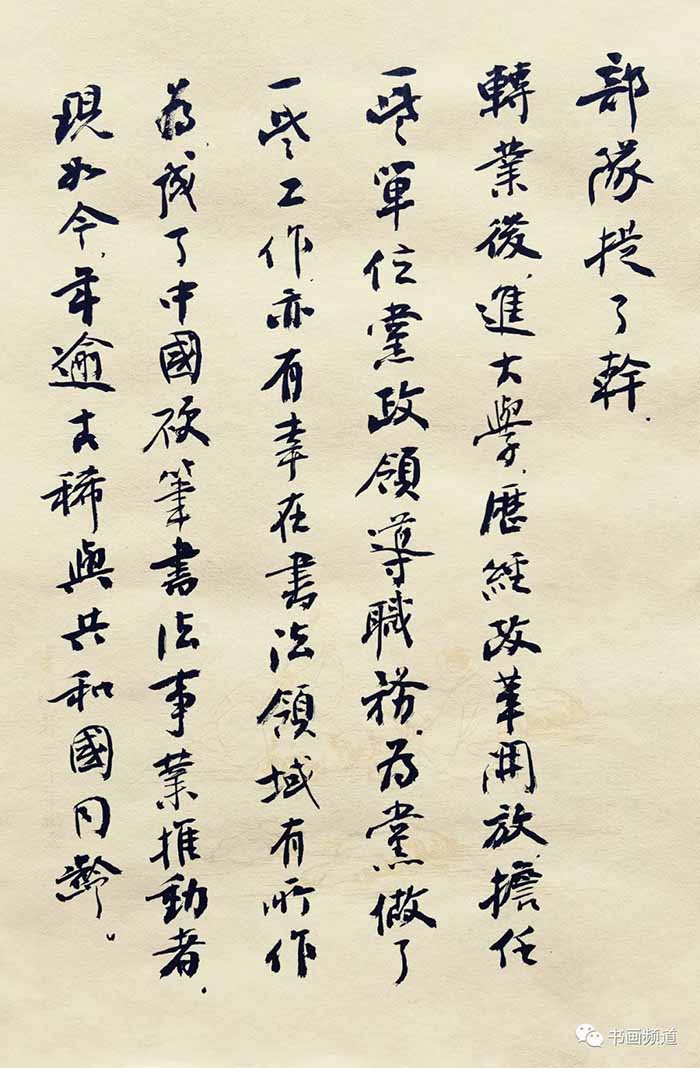 部隊提了幹.
轉業後,進大學,歷經改革開放,擔任
一些單位黨政領導職務,為黨做了
一些工作,亦有幸在書法領域有所作
為,成了中國硬筆書法事業推動者.
現如今,年逾古稀與共和國同齡。
书画频道